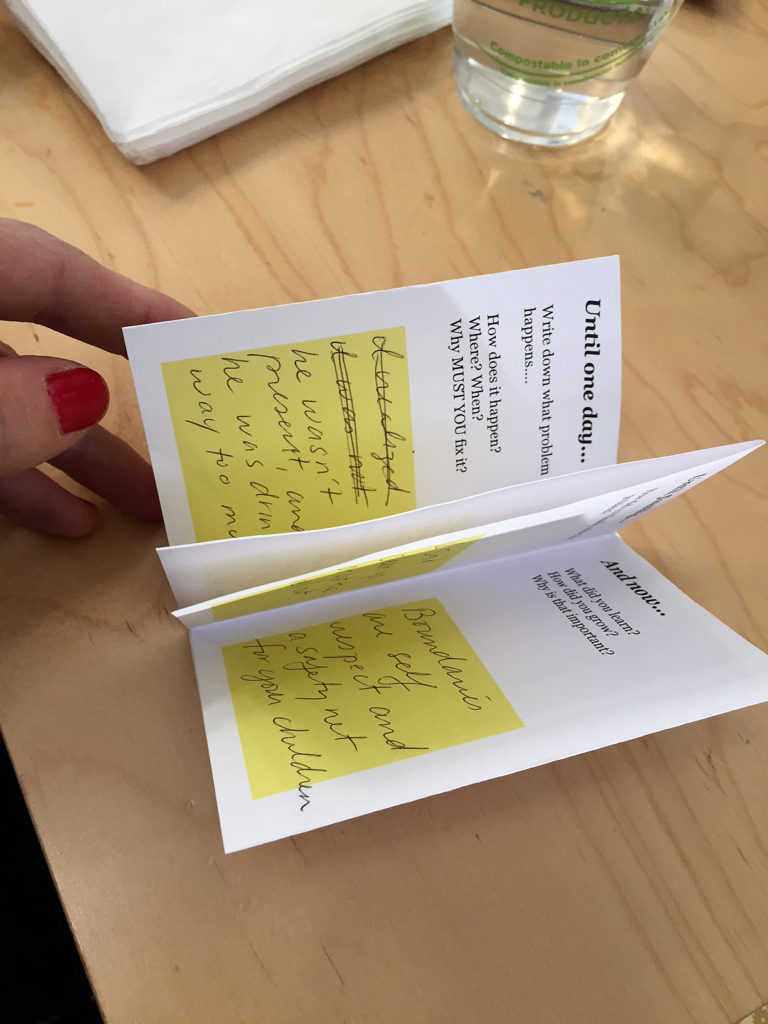 PRODUCT
Compostable in
Until one day...
Write down what problem
happens....
How does it happen?
Where? When?
Why MUST YOU fix it?
I realized
it was not
he wasn't
present, and
he was drin
way too mu
And now...
What did you learn?
How did you grow?
Why is that important?
Boundaries
are self
respect and
a safety net
for your children